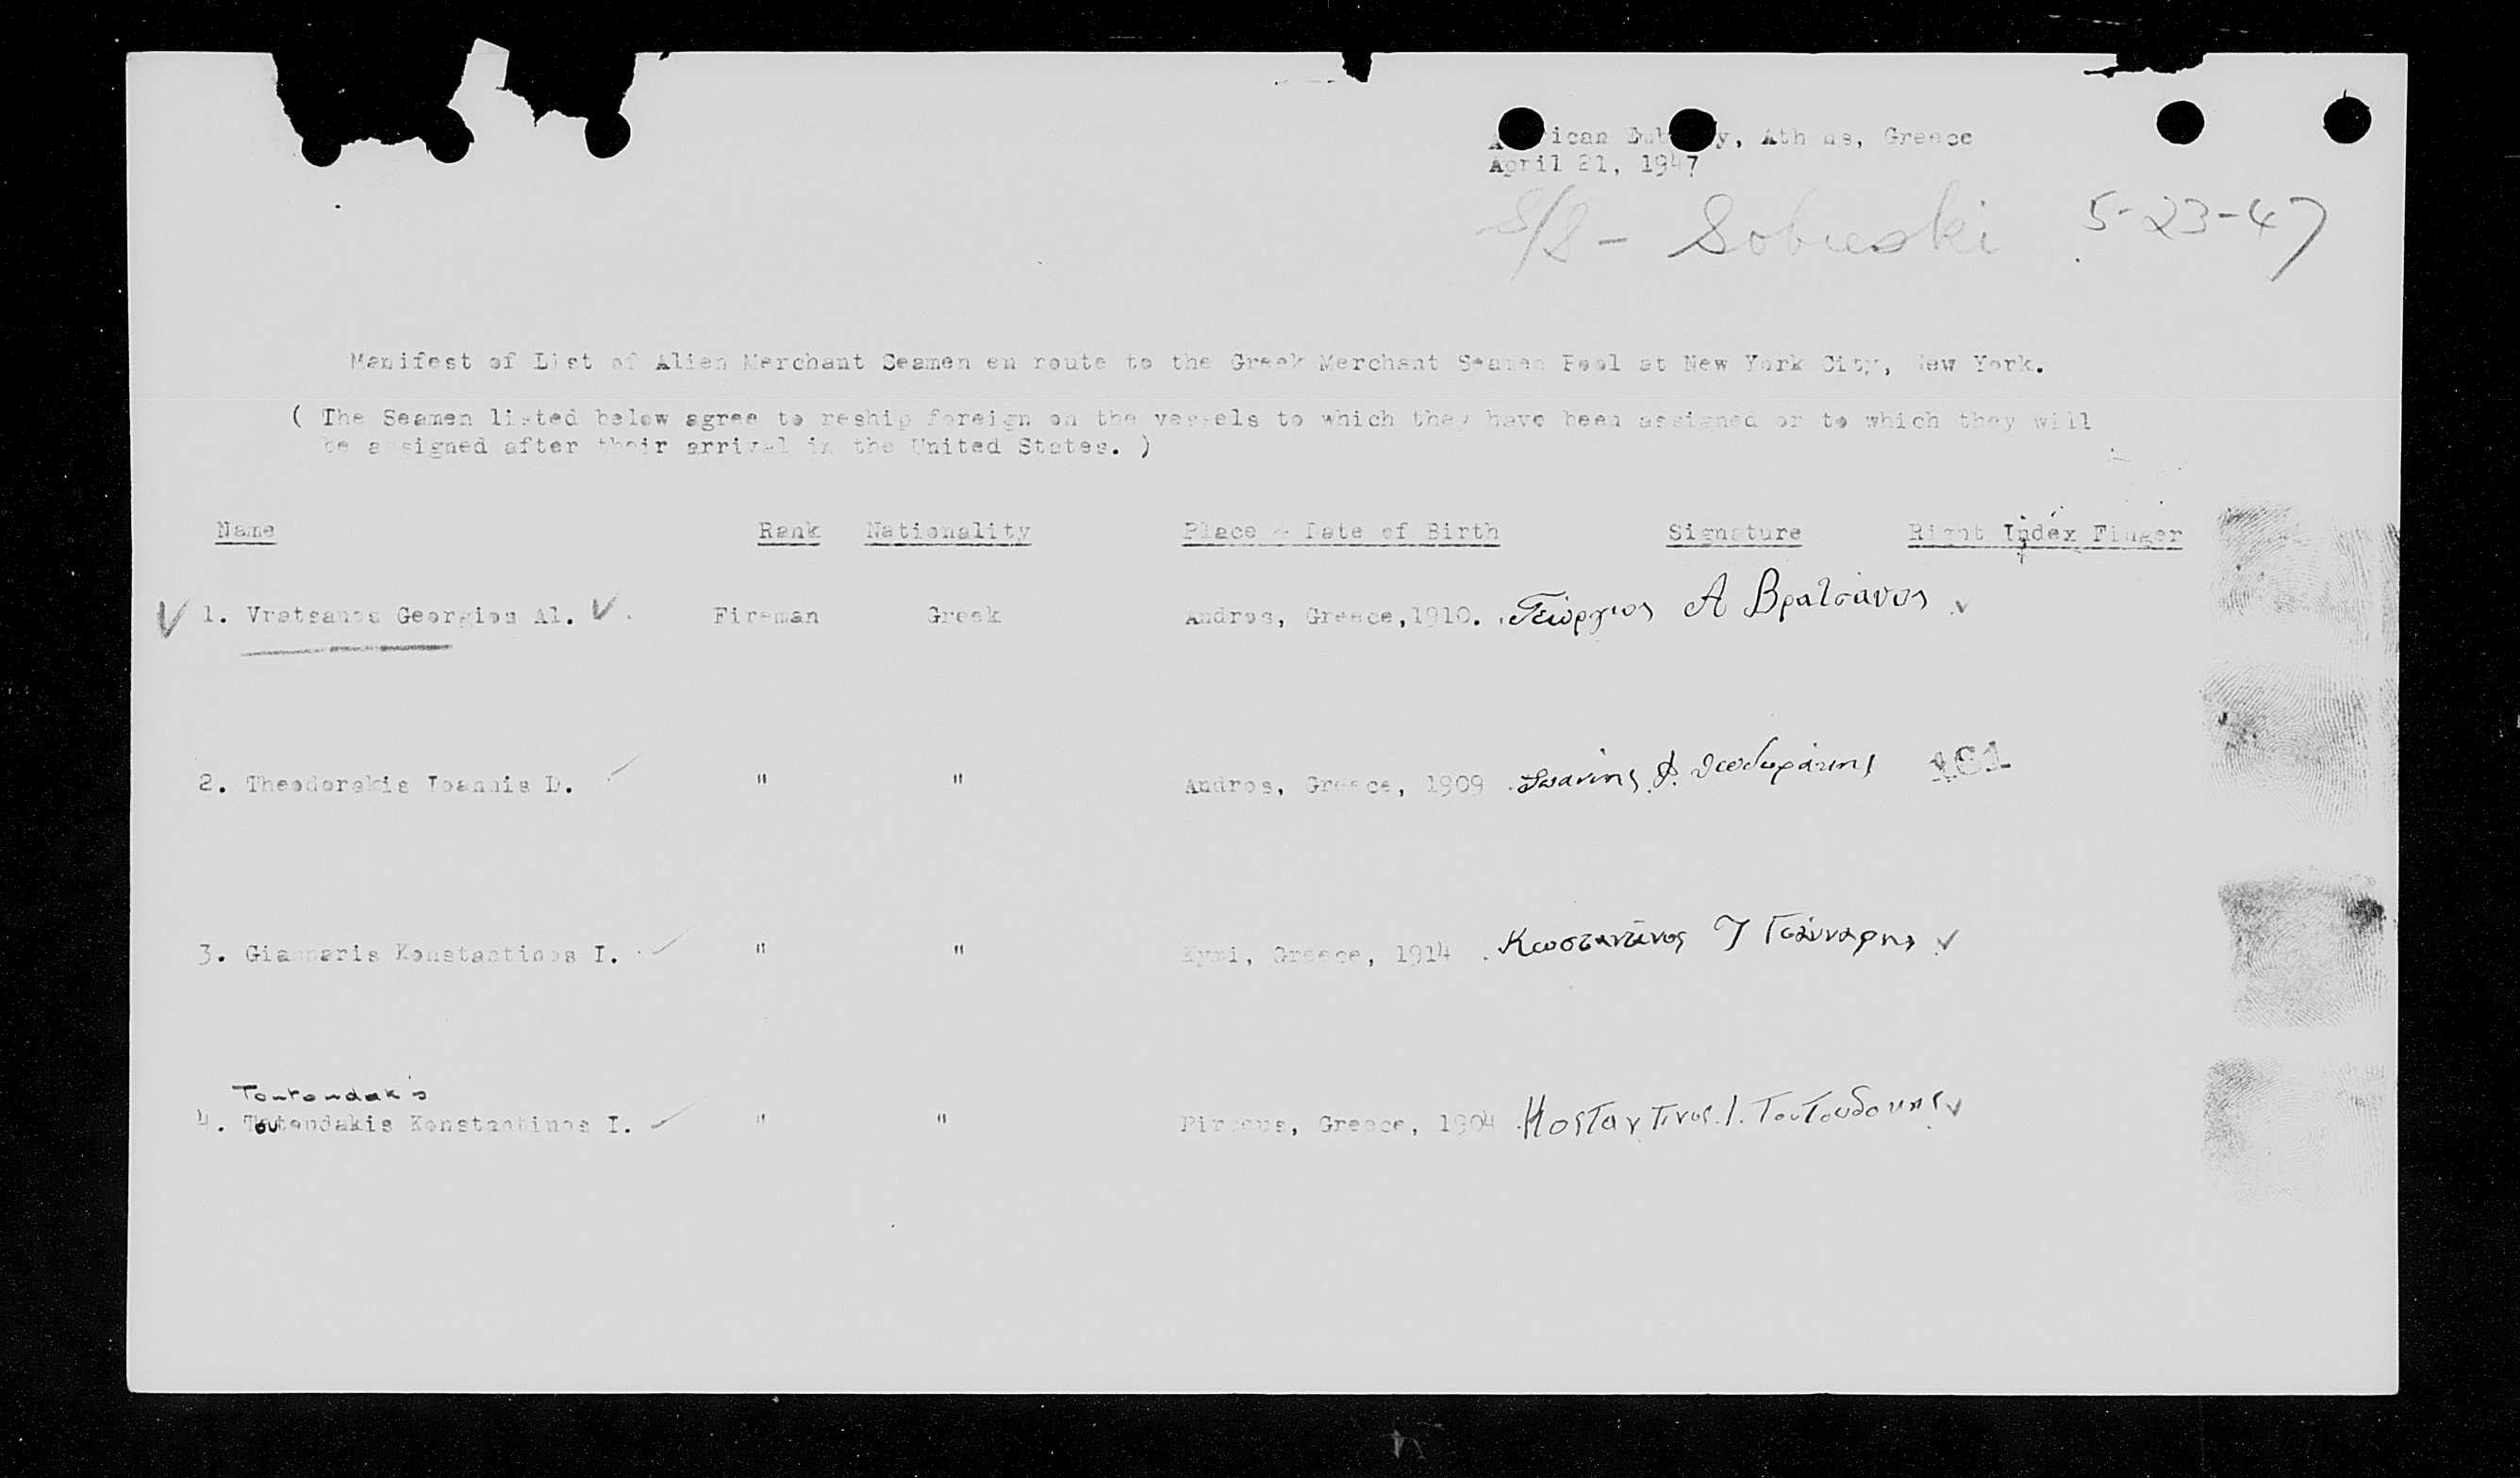 American Embassy, Athens, Greece
April 21, 1947
S/S - Sobieski 5-23-47
Manifest of List of Alien Merchant Seamen en route to the Greek Merchant Seamen Pool at New York City, New York.
( The Seamen listed below agree to reship foreign on the vessels to which they have been assigned or to which they will
be assigned after their arrival in the United States. )
Name Rank Nationality Place - Date of Birth Signature Right Index Finger
1. Vratsanos Georgios Al. Fireman Greek Andros, Greece, 1910. Γεώργιος Α Βρατσάνος
2. Theodorakis Ioannis D. " " Andros, Greece, 1909 Ιωάννης Δ. Θεοδωράκης 181
3. Giannaris Konstantinos I. " " Kymi, Greece, 1914 Κωσταντίνος Ι Γιάνναρης
Toutoudakis
4. Toutoudakis Konstantinos I. " " Piraeus, Greece, 1904 Κοσταντινος Ι. Τουτουδακης